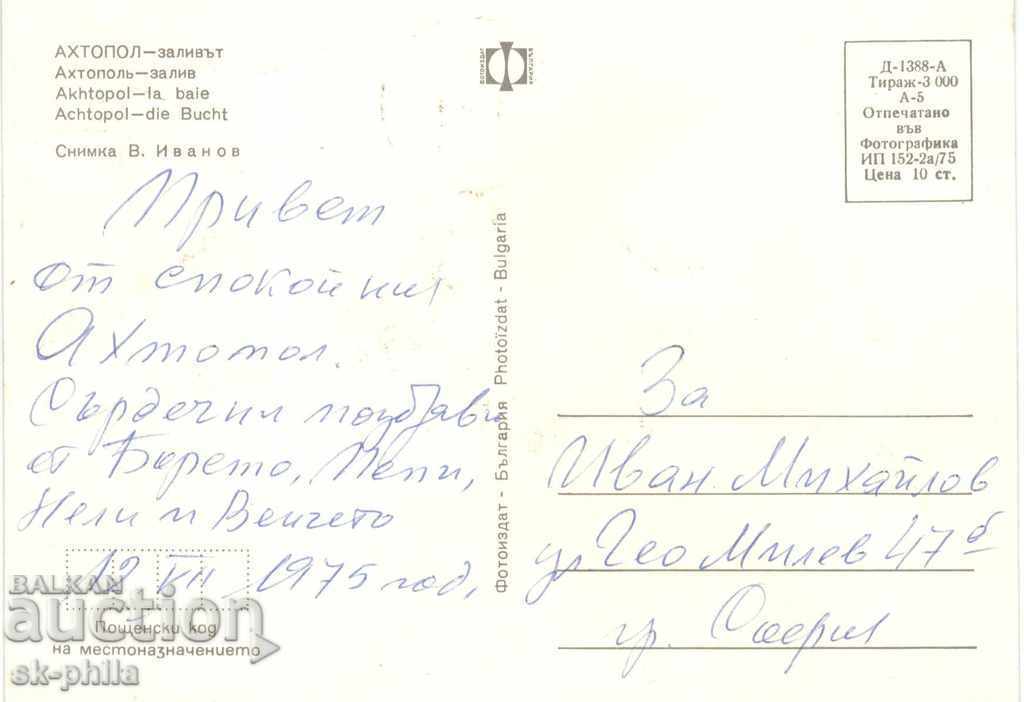 АХТОПОЛ—заливът
Ахтополь—залив
Akhtopol—la baie
Achtopol—die Bucht
Снимка В. Иванов
ФОТОИЗДАТ
БЪЛГАРИЯ
Д-1388-А
Тираж-3 000
А-5
Отпечатано
във
Фотографика
ИП 152-2а/75
Цена 10 ст.
Привет
от спокойния
Ахтопол.
Сърдечни поздрави
от Борето, Пепи,
Нели и Венчето
1975 год.
Фотоиздат - България Photoïzdat - Bulgaria
За
Иван Михайлов
ул Гео Милев 47б
гр. София
Пощенски код
на местоназначението
BALKAN
auction
sk-phila